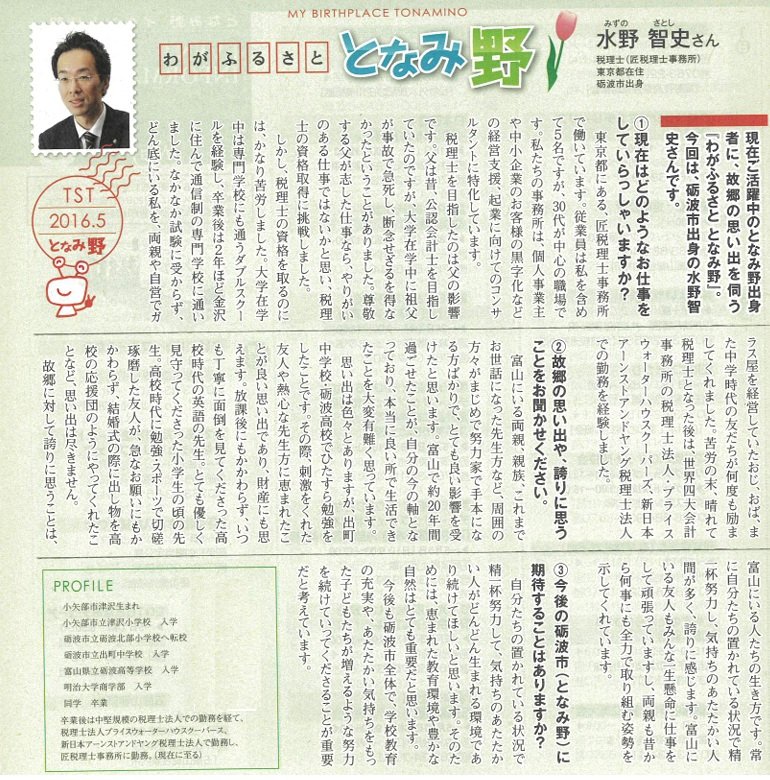 MY BIRTHPLACE TONAMINO
わがふるさと となみ野
みずの さとし
水野 智史さん
税理士(匠税理士事務所)
東京都在住
砺波市出身
TST
2016.5
となみ野
現在ご活躍中のとなみ野出身
者に、故郷の思い出を伺う
『わがふるさと となみ野』。
今回は、砺波市出身の水野智
史さんです。
①現在はどのようなお仕事を
していらっしゃいますか?
東京都にある、匠税理士事務所
で働いています。従業員は私を含め
て5名ですが、30代が中心の職場で
す。私たちの事務所は、個人事業主
や中小企業のお客様の黒字化など
の経営支援、起業に向けてのコンサ
ルタントに特化しています。
税理士を目指したのは父の影響
です。父は昔、公認会計士を目指し
ていたのですが、大学在学中に祖父
が事故で急死し、断念せざるを得な
かったということがありました。尊敬
する父が志した仕事なら、やりがい
のある仕事ではないかと思い、税理
士の資格取得に挑戦しました。
しかし、税理士の資格を取るのに
は、かなり苦労しました。大学在学
中は専門学校にも通うダブルスクー
ルを経験し、卒業後は2年ほど金沢
に住んで通信制の専門学校に通い
ました。なかなか試験に受からず、
どん底にいる私を、両親や自営でガ
ラス屋を経営していたおじ、おば、ま
た中学時代の友だちが何度も励ま
してくれました。苦労の末、晴れて
税理士となった後は、世界四大会計
事務所の税理士法人・プライス
ウォーターハウスクーパーズ、新日本
アーンストアンドヤング税理士法人
での勤務を経験しました。
②故郷の思い出や、誇りに思う
ことをお聞かせください。
富山にいる両親、親族、これまで
お世話になった先生方など、周囲の
方々がまじめで努力家で手本にな
る方ばかりで、とても良い影響を受
けたと思います。富山で約20年間
過ごせたことが、自分の今の軸とな
っており、本当に良い所で生活でき
たことを大変有難く思っています。
思い出は色々とありますが、出町
中学校・砺波高校でひたすら勉強を
したことです。その際、刺激をくれた
友人や熱心な先生方に恵まれたこ
とが良い思い出であり、財産にも思
えます。放課後にもかかわらず、いつ
も丁寧に面倒を見てくださった高
校時代の英語の先生。とても優しく
見守ってくださった小学生の頃の先
生。高校時代に勉強・スポーツで切磋
琢磨した友人が、急なお願いにもか
かわらず、結婚式の際に出し物を高
校の応援団のようにやってくれたこ
となど、思い出は尽きません。
故郷に対して誇りに思うことは、
富山にいる人たちの生き方です。常
に自分たちの置かれている状況で精
一杯努力し、気持ちのあたたかい人
間が多く、誇りに感じます。富山に
いる友人もみんな一生懸命に仕事を
して頑張っていますし、両親も昔か
ら何事にも全力で取り組む姿勢を
示してくれています。
③今後の砺波市(となみ野)に
期待することはありますか?
自分たちの置かれている状況で
精一杯努力して、気持ちのあたたか
い人がどんどん生まれる環境であ
り続けてほしいと思います。そのた
めには、恵まれた教育環境や豊かな
自然はとても重要だと思います。
今後も砺波市全体で、学校教育
の充実や、あたたかい気持ちをもっ
た子どもたちが増えるような努力
を続けていってくださることが重要
だと考えています。
PROFILE
小矢部市津沢生まれ
小矢部市立津沢小学校 入学
砺波市立砺波北部小学校へ転校
砺波市立出町中学校 入学
富山県立砺波高等学校 入学
明治大学商学部 入学
同学 卒業
卒業後は中堅規模の税理士法人での勤務を経て、
税理士法人プライスウォーターハウスクーパース、
新日本アーンストアンドヤング税理士法人で勤務し、
匠税理士事務所に勤務。(現在に至る)